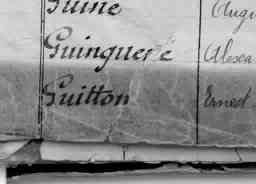 Guine Augu
Guinguené Alexa
Guitton Ernest